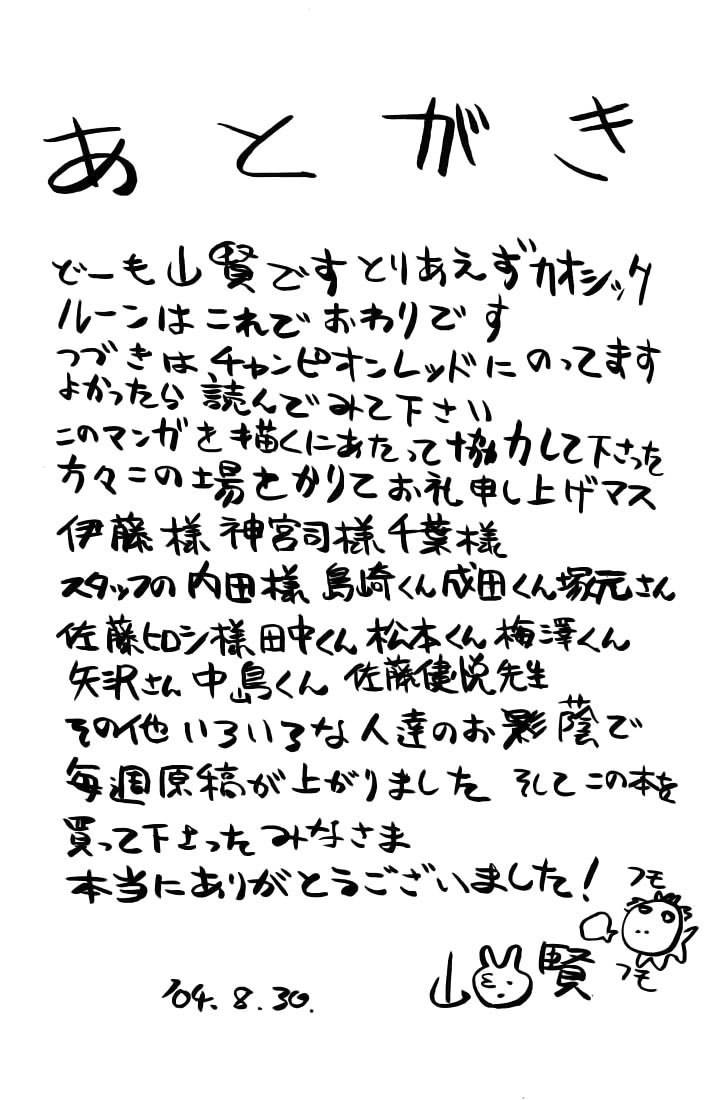 あとがき
どーも山賢ですとりあえずカオシック
ルーンはこれでおわりです
つづきはチャンピオンレッドにのってます
よかったら読んでみて下さい
このマンガを描くにあたって協力して下さった
方々この場をかりてお礼申し上げマス
伊藤様神宮司様千葉様
スタッフの内田様島崎くん成田くん塚元さん
佐藤ヒロシ様田中くん松本くん梅澤くん
矢沢さん中島くん佐藤健悦先生
その他いろいろな人達のお影蔭で
毎週原稿が上がりました そしてこの本を
買って下さったみなさま
本当にありがとうございました!
フモ
フモ
山賢
'04.8.30.